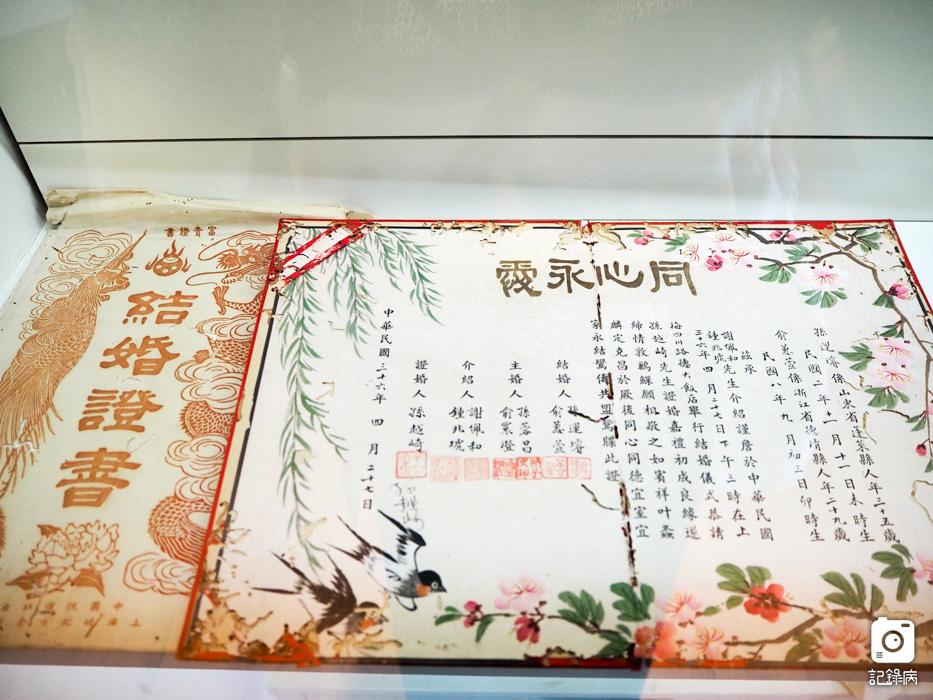 同心永愛
孫運璿係山東省蓬萊縣人年三十五歲
民國二年十一月十一日未時生
俞蕙萱係浙江省德清縣人年二十九歲
民國八年九月初三日卯時生
茲承
謝佩和
鍾兆琥先生介紹謹詹於中華民國
三十六年四月二十七日下午三時在上
海四川路大飯店舉行結婚儀式恭請
孫越崎先生證婚嘉禮初成良緣遂
締情敦鶼鰈願相敬之如賓祥叶螽
麟定克昌於厥後同心同德宜室宜
家永結鸞儔共盟鴛牒此證
結婚人 孫運璿
俞蕙萱
主婚人 孫蓉昌
俞棠澄
介紹人 謝佩和
鍾兆琥
證婚人 孫越崎
中華民國三十六年四月二十七日
富貴證書
結婚證書
記錄病